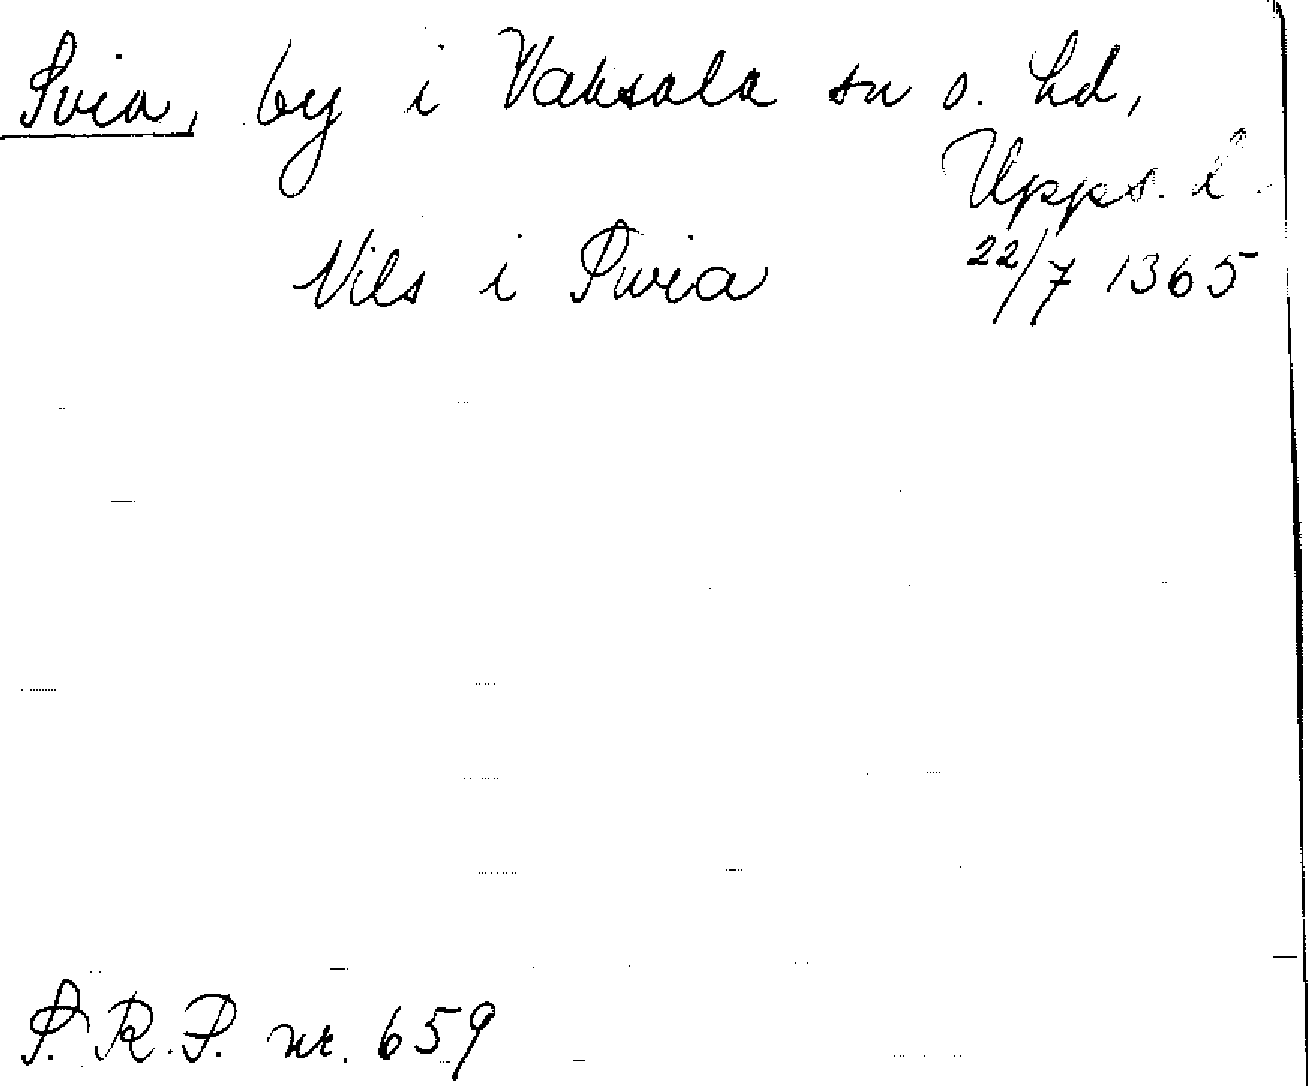 Svia, by i Vaksala sn o. hd,
Upps. l.
Nils i Swia 22/7 1365
S. R. P. nr. 659